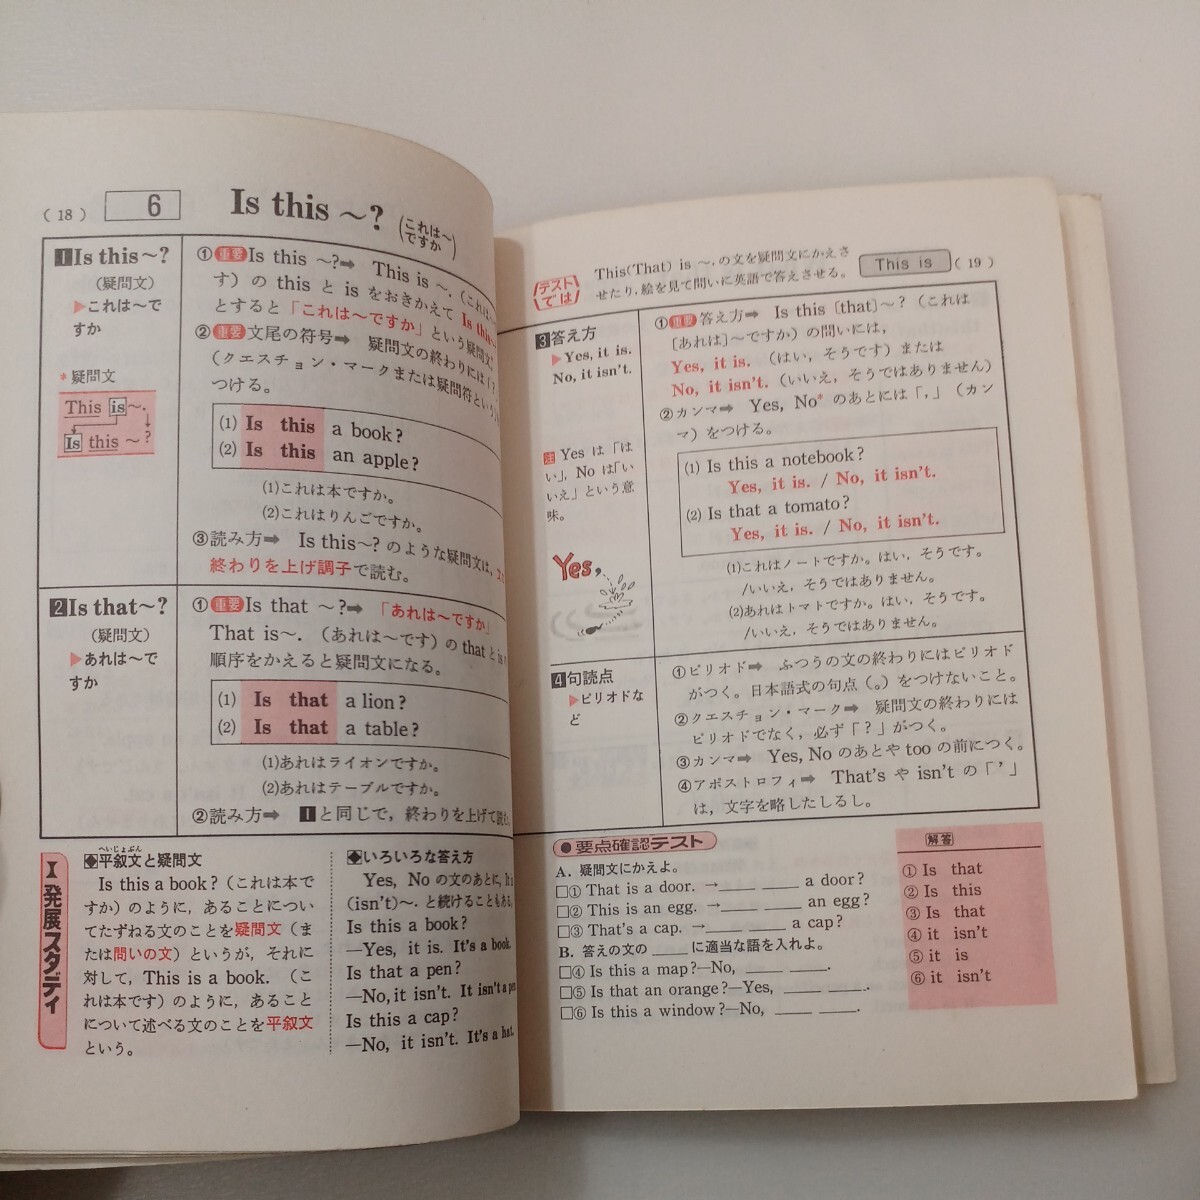 ( 18 )
6
Is this ～?
(これは～ですか)
1 Is this～?
(疑問文)
▶これは～で
すか
* 疑問文
This is～.
Is this～?
① 重要 Is this ～?➡ This is ～. (これは～
す) の this と is をおきかえて Is this～
とすると「これは～ですか」という疑問文
② 重要 文尾の符号➡ 疑問文の終わりには「?
(クエスチョン・マークまたは疑問符という
つける。
(1) Is this a book?
(2) Is this an apple?
(1)これは本ですか。
(2)これはりんごですか。
③読み方➡ Is this～? のような疑問文は,
終わりを上げ調子で読む。
2 Is that～?
(疑問文)
▶あれは～で
すか
① 重要 Is that ～?➡ 「あれは～ですか」
That is～. (あれは～です) の that と is
順序をかえると疑問文になる。
(1) Is that a lion?
(2) Is that a table?
(1)あれはライオンですか。
(2)あれはテーブルですか。
②読み方➡ 1と同じで, 終わりを上げて読
I 発展スタディ
へいじょぶん
◆平叙文と疑問文
Is this a book? (これは本で
すか) のように, あることについ
てたずねる文のことを疑問文 (ま
たは問いの文) というが, それに
対して, This is a book. (こ
れは本です) のように, あること
について述べる文のことを平叙文
という。
◆いろいろな答え方
Yes, No の文のあとに, It is
(isn't)～. と続けることもある。
Is this a book?
—Yes, it is. It's a book.
Is that a pen?
—No, it isn't. It isn't a pen
Is this a cap?
—No, it isn't. It's a hat.
テストでは
This(That) is ～. の文を疑問文にかえさ
せたり, 絵を見て問いに英語で答えさせる。
This is
( 19 )
3 答え方
▶Yes, it is.
No, it isn't.
注 Yes は「は
い」, No は「い
いえ」という意
味。
Yes,
① 重要 答え方➡ Is this [that]～? (これは
[あれは]～ですか) の問いには,
Yes, it is. (はい, そうです) または
No, it isn't. (いいえ, そうではありません)
②カンマ➡ Yes, No* のあとには「,」(カン
マ) をつける。
(1) Is this a notebook?
Yes, it is. / No, it isn't.
(2) Is that a tomato?
Yes, it is. / No, it isn't.
(1)これはノートですか。はい, そうです。
/いいえ, そうではありません。
(2)あれはトマトですか。はい, そうです。
/いいえ, そうではありません。
4 句読点
▶ピリオドな
ど
①ピリオド➡ ふつうの文の終わりにはピリオド
がつく。日本語式の句点 (。) をつけないこと。
②クエスチョン・マーク➡ 疑問文の終わりには
ピリオドでなく, 必ず「?」がつく。
③カンマ➡ Yes, No のあとや too の前につく。
④アポストロフィ➡ That's や isn't の「'」
は, 文字を略したしるし。
●要点確認テスト
A. 疑問文にかえよ。
□① That is a door. →____ ____ a door?
□② This is an egg. →____ ____ an egg?
□③ That's a cap. →____ ____ a cap?
B. 答えの文の ____ に適当な語を入れよ。
□④ Is this a map?—No, ____ ____.
□⑤ Is that an orange?—Yes, ____ ____.
□⑥ Is this a window?—No, ____ ____.
解答
① Is that
② Is this
③ Is that
④ it isn't
⑤ it is
⑥ it isn't